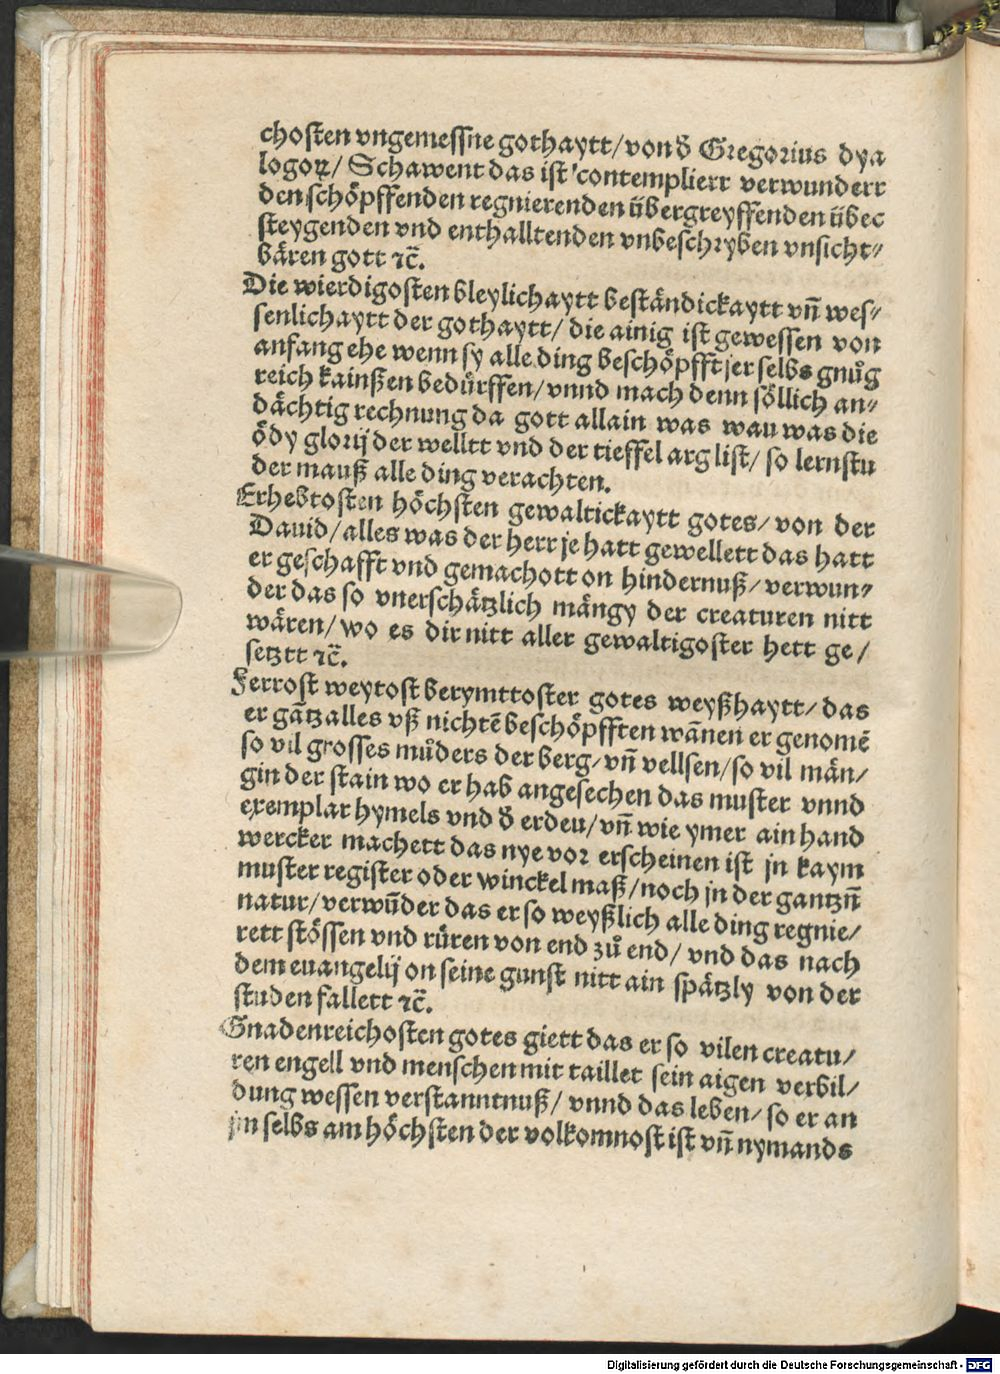 chosten vngemessne gothaytt/von ð Gregorius dya
logoꝝ/ Schawent das ist 'contemplierr verwunderr
den schöpffenden regnierenden übergreyffenden übec
steygenden vnd enthalltenden vnbeschryben vnsicht⸗
bären gott ⁊c̄.
Die wierdigosten bleylichaytt beständickaytt vn̄ wes⸗
senlichaytt der gothaytt/ die ainig ist gewessen von
anfang ehe wenn sy alle ding beschöpfft jer selbs gnůg
reich kainßen bedürffen/vnnd mach denn söllich an⸗
dächtig rechnung da gott allain was wau was die
ödy glorij der welltt vnd der tieffel arg list/ so lernstu
der mauß alle ding verachten.
Erhebtosten höchsten gewaltickaytt gotes/ von der
Dauid/alles was der herr je hatt gewellett das hatt
er geschafft vnd gemachott on hindernuß/ verwun⸗
der das so vnerschätzlich mängy der creaturen nitt
wären/wo es dir nitt aller gewaltigoster hett ge/
setztt ⁊c̄.
Ferrost weytost berymttoster gotes weyßhaytt/ das
er gātz alles vß nichtē beschöpfften wānen er genomē
so vil grosses můders der berg/ vn̄ vellsen/so vil män/
gin der stain wo er hab angesechen das muster vnnd
exemplar hymels vnd ð erden/vn̄ wie ymer ain hand
wercker machett das nye vor erscheinen ist jn kaym
muster register oder winckel maß/noch jn der gantzn̄
natur/verwūder das er so weyßlich alle ding regnie/
rett stössen vnd rüren von end zů end/ vnd das nach
dem euangelij on seine gunst nitt ain spätzly von der
studen fallett ⁊c̄.
Gnadenreichosten gotes giett das er so vilen creatu/
ren engell vnd menschen mit taillet sein aigen verbil/
dung wessen verstanntnuß/ vnnd das leben/ so er an
jm selbs am höchsten der volkomnost ist vn̄ nymands
Digitalisierung gefördert durch die Deutsche Forschungsgemeinschaft - DFG